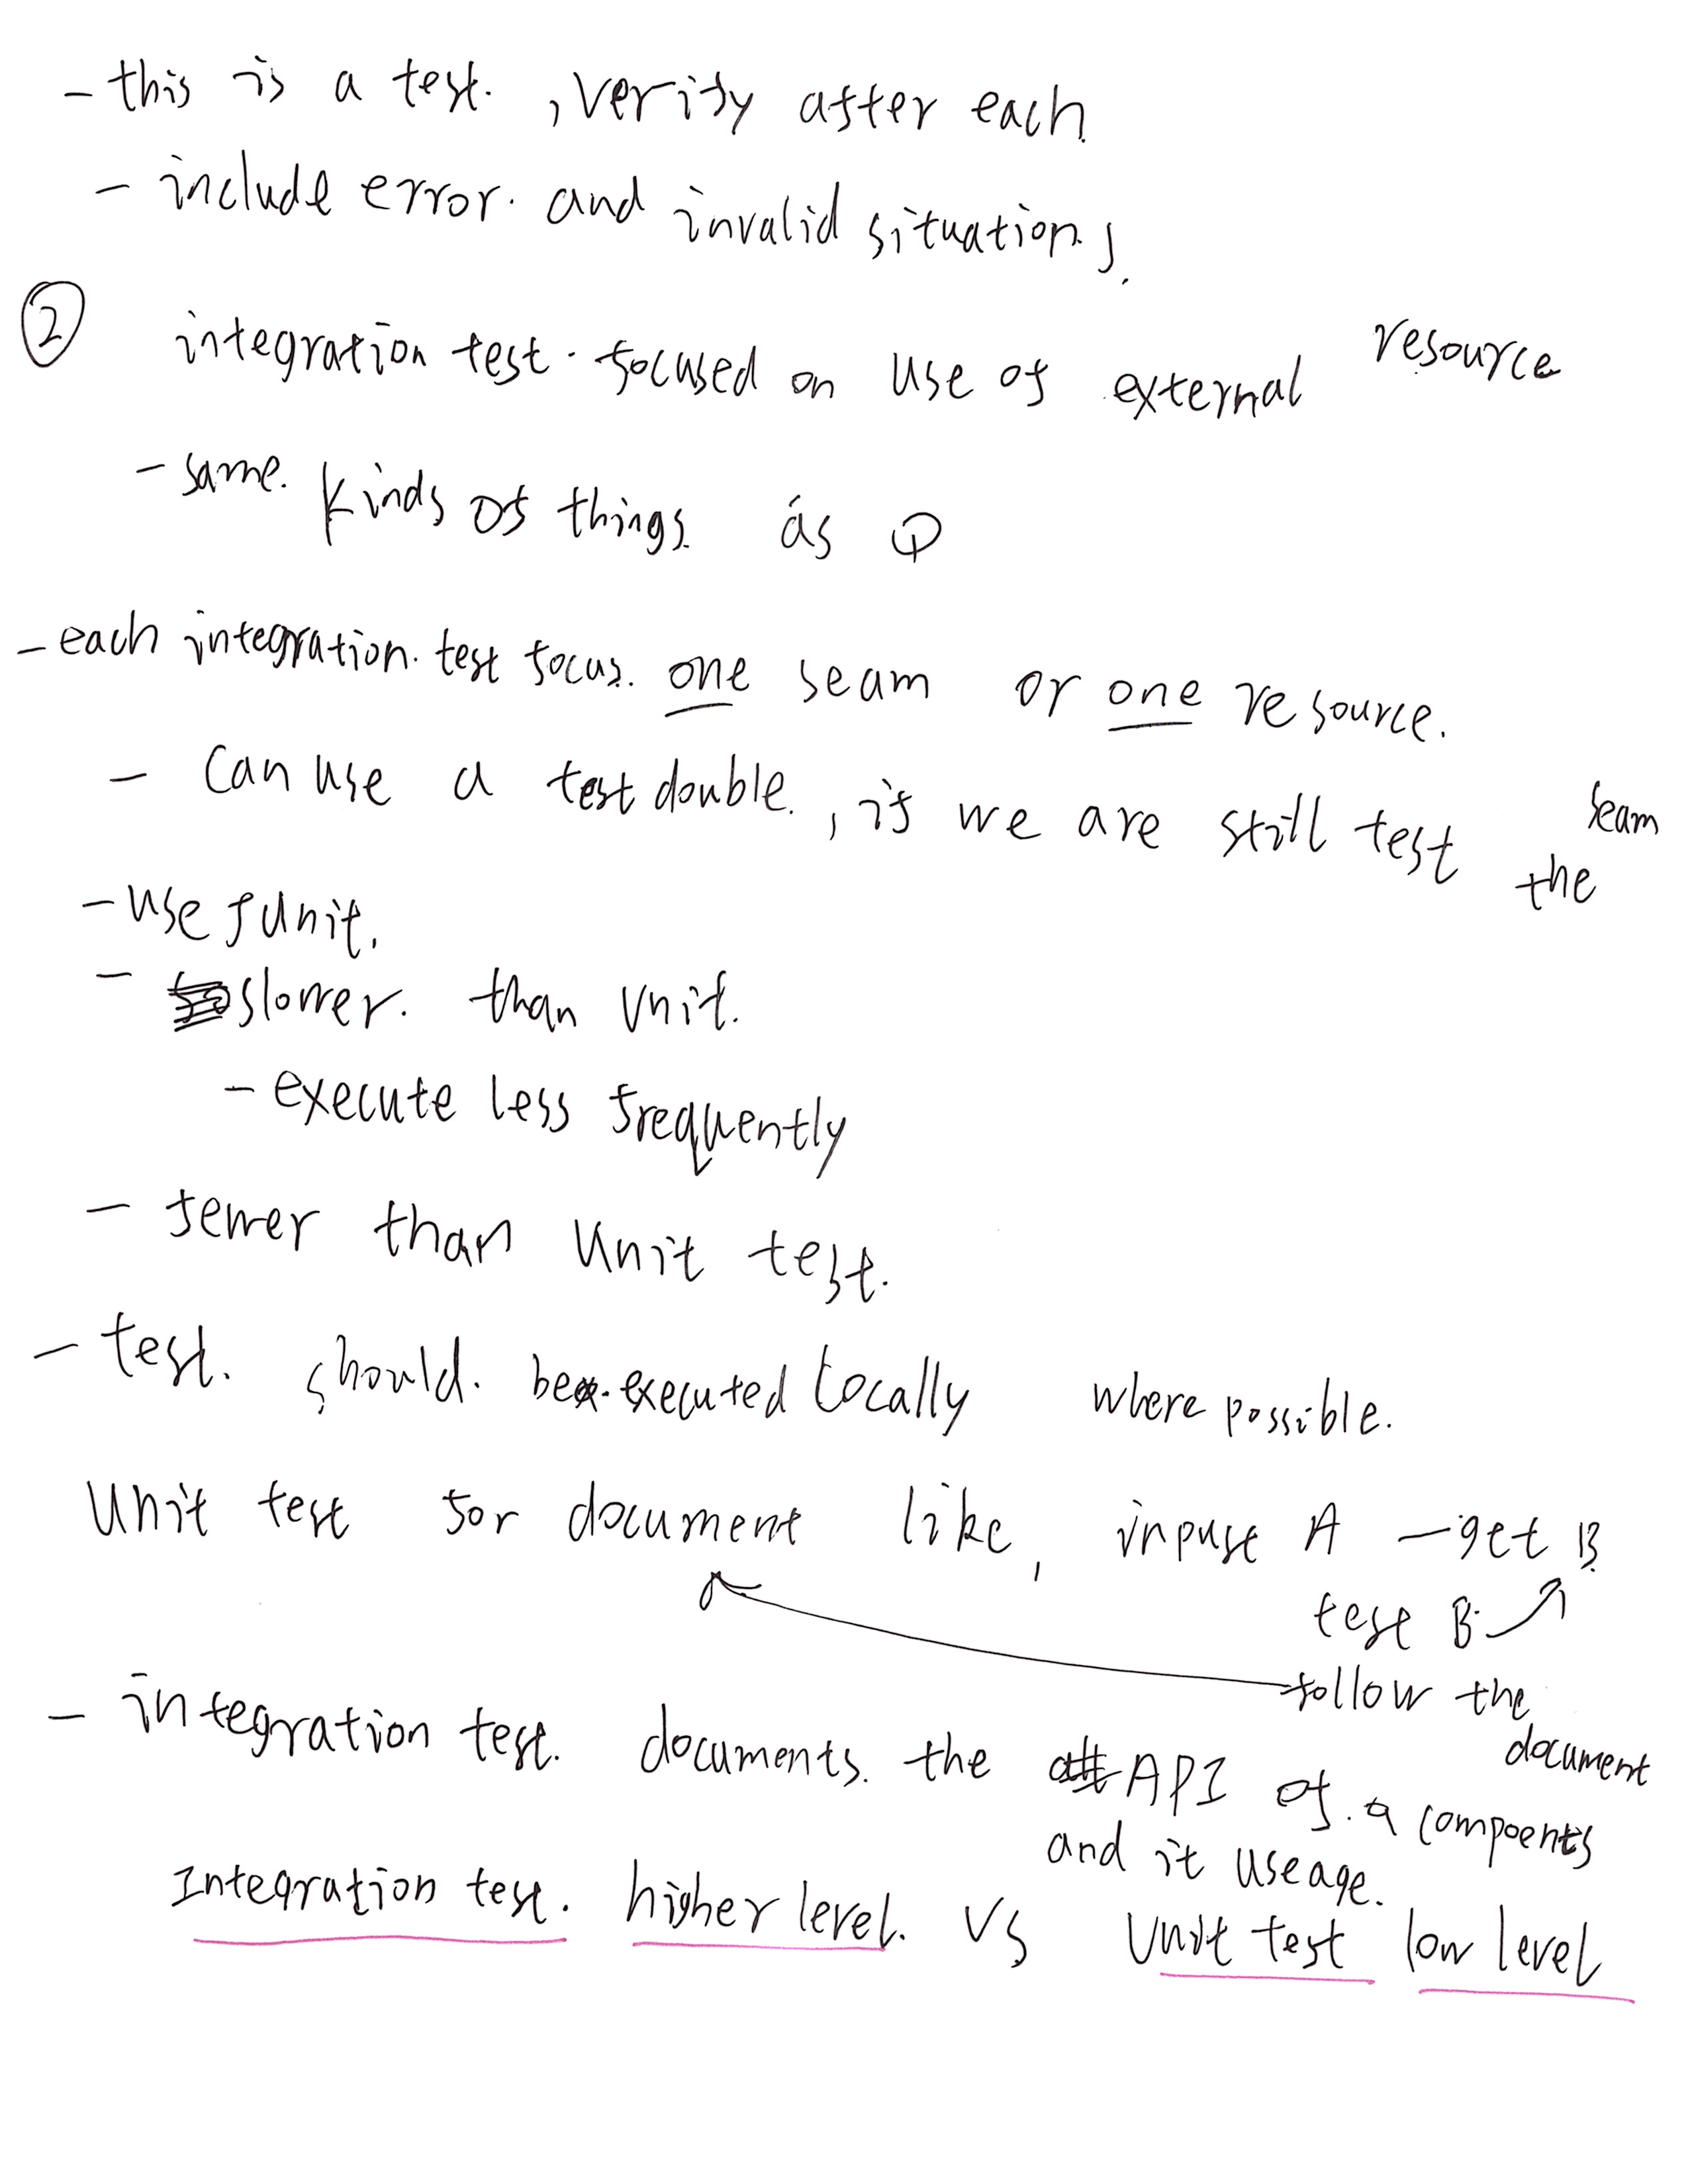 - this is a test. , verify after each
- include error. and invalid situations.
② integration test. focused on use of external resource
- same. kinds of things. as ①
- each integration. test focus. one seam or one resource.
- can use a test double. , if we are still test the seam
- use JUnit.
- slower. than unit.
- execute less frequently
- fewer than unit test.
- test. should. be executed locally where possible.
Unit test for document like, inpust A - get B
test B
follow the
document
- integration test. documents. the API of. a compoents
and it useage.
Integration test. higher level. VS Unit test low level